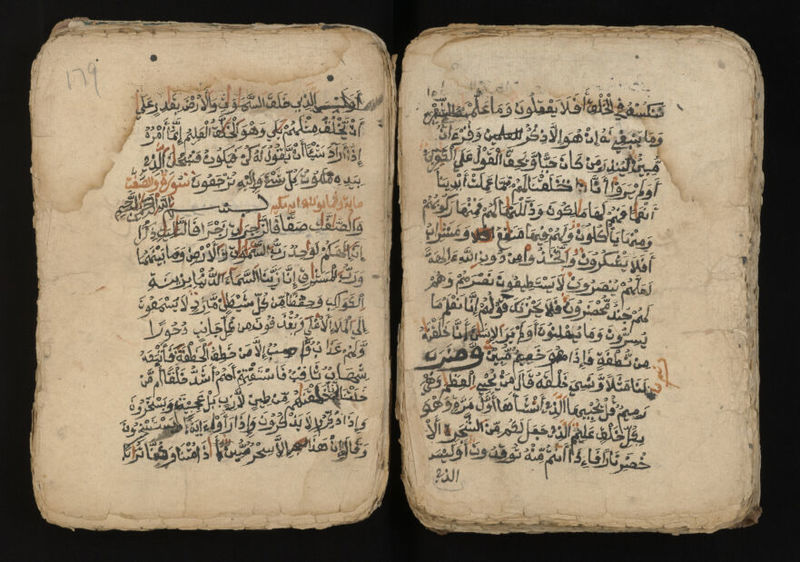 ننكسه في الخلق أفلا يعقلون وما علمنه الشعر
وما ينبغي له ان هو الا ذكر وقرءان
مبين لينذر من كان حيا ويحق القول على الكفرين
اولم يروا انا خلقنا لهم مما عملت ايدينا
انعما فهم لها ملكون وذللنها لهم فمنها ركوبهم
ومنها ياكلون ولهم فيها منفع ومشارب
افلا يشكرون واتخذوا من دون الله ءالهة
لعلهم ينصرون لا يستطيعون نصرهم وهم
لهم جند محضرون فلا يحزنك قولهم إنا نعلم ما
يسرون وما يعلنون اولم ير الانسن أنا خلقنه
من نطفة فإذا هو خصيم مبين وضرب
لنا مثلا ونسي خلقه قال من يحي العظم وهي
رميم قل يحييها الذي أنشأها أول مرة وهو
بكل خلق عليم الذي جعل لكم من الشجر الا
خضر نارا فإذا أنتم منه توقدون أوليس
الذي
179
أوليس الذي خلق السموت والارض بقدر على
أن يخلق مثلهم بلى وهو الخلق العليم إنما أمره
إذا أراد شيئا أن يقول له كن فيكون فسبحن الذي
بيده ملكوت كل شيء وإليه ترجعون سورة والصفت
بسم الله الرحمن الرحيم
والصفت صفا فالزجرت زجرا فالتليت ذكرا
إن إلهكم لوحد رب السموت والارض وما بينهما
ورب المشرق إنا زينا السماء الدنيا بزينة
الكواكب وحفظا من كل شيطن مارد لا يسمعون
إلى الملإ الأعلى ويقذفون من كل جانب دحورا
ولهم عذاب واصب إلا من خطف الخطفة فأتبعه
شهاب ثاقب فاستفتهم أهم أشد خلقا أم من
خلقنا إنا خلقنهم من طين لازب بل عجبت ويسخرون
وإذا ذكروا لا يذكرون وإذا رأوا ءاية يستسخرون
وقالوا إن هذا إلا سحر مبين أءذا متنا وكنا ترابا